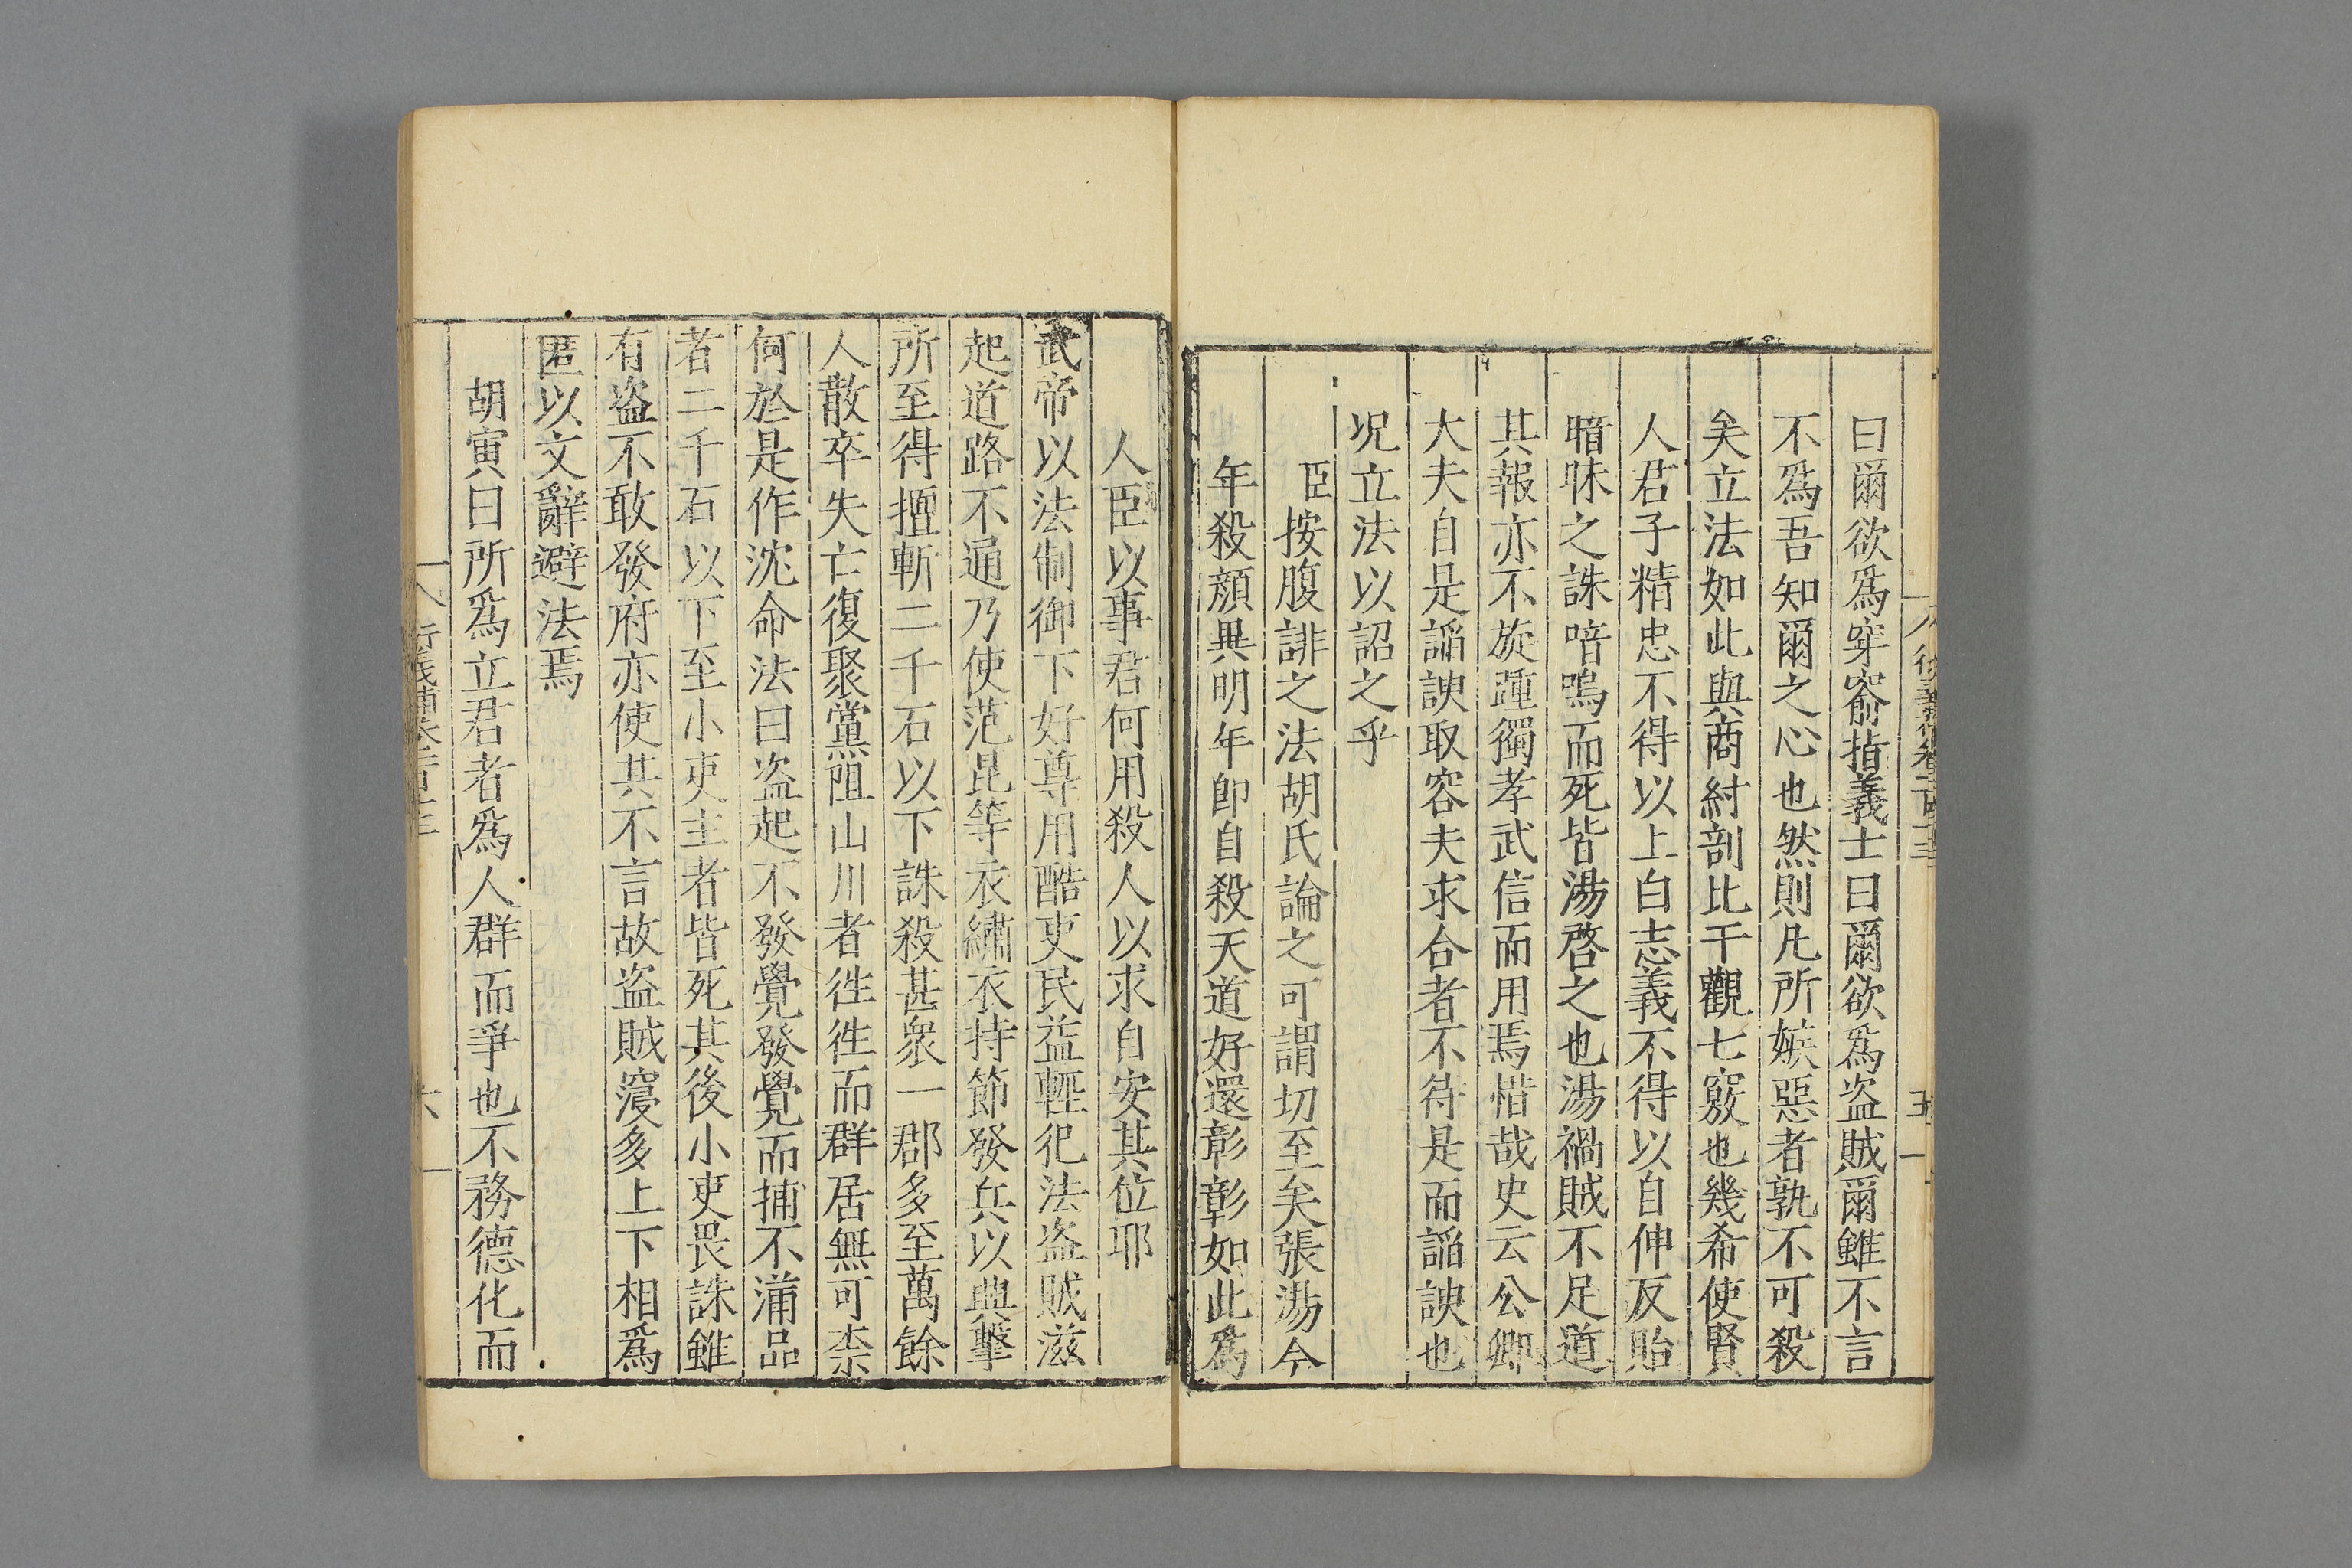 曰爾欲爲穿窬指義士曰爾欲爲盜賊爾雖不言
不爲吾知爾之心也然則凡所嫉惡者孰不可殺
矣立法如此與商紂剖比干觀七竅也幾希使賢
人君子精忠不得以上白志義不得以自伸反貽
暗昧之誅喑嗚而死皆湯啓之也湯禍賊不足道
其報亦不旋踵獨孝武信而用焉惜哉史云公卿
大夫自是謟諛取容夫求合者不待是而謟諛也
况立法以詔之乎
臣按腹誹之法胡氏論之可謂切至矣張湯今
年殺顔異明年卽自殺天道好還彰彰如此爲
人臣以事君何用殺人以求自安其位耶
武帝以法制御下好尊用酷吏民益輕犯法盜賊滋
起道路不通乃使范昆等衣繡衣持節發兵以興擊
所至得擅斬二千石以下誅殺甚衆一郡多至萬餘
人散卒失亡復聚黨阻山川者徃徃而群居無可柰
何於是作沈命法曰盜起不發覺發覺而捕不滿品
者二千石以下至小吏主者皆死其後小吏畏誅雖
有盜不敢發府亦使其不言故盜賊寖多上下相爲
匿以文辭避法焉
胡寅曰所爲立君者爲人群而爭也不務德化而